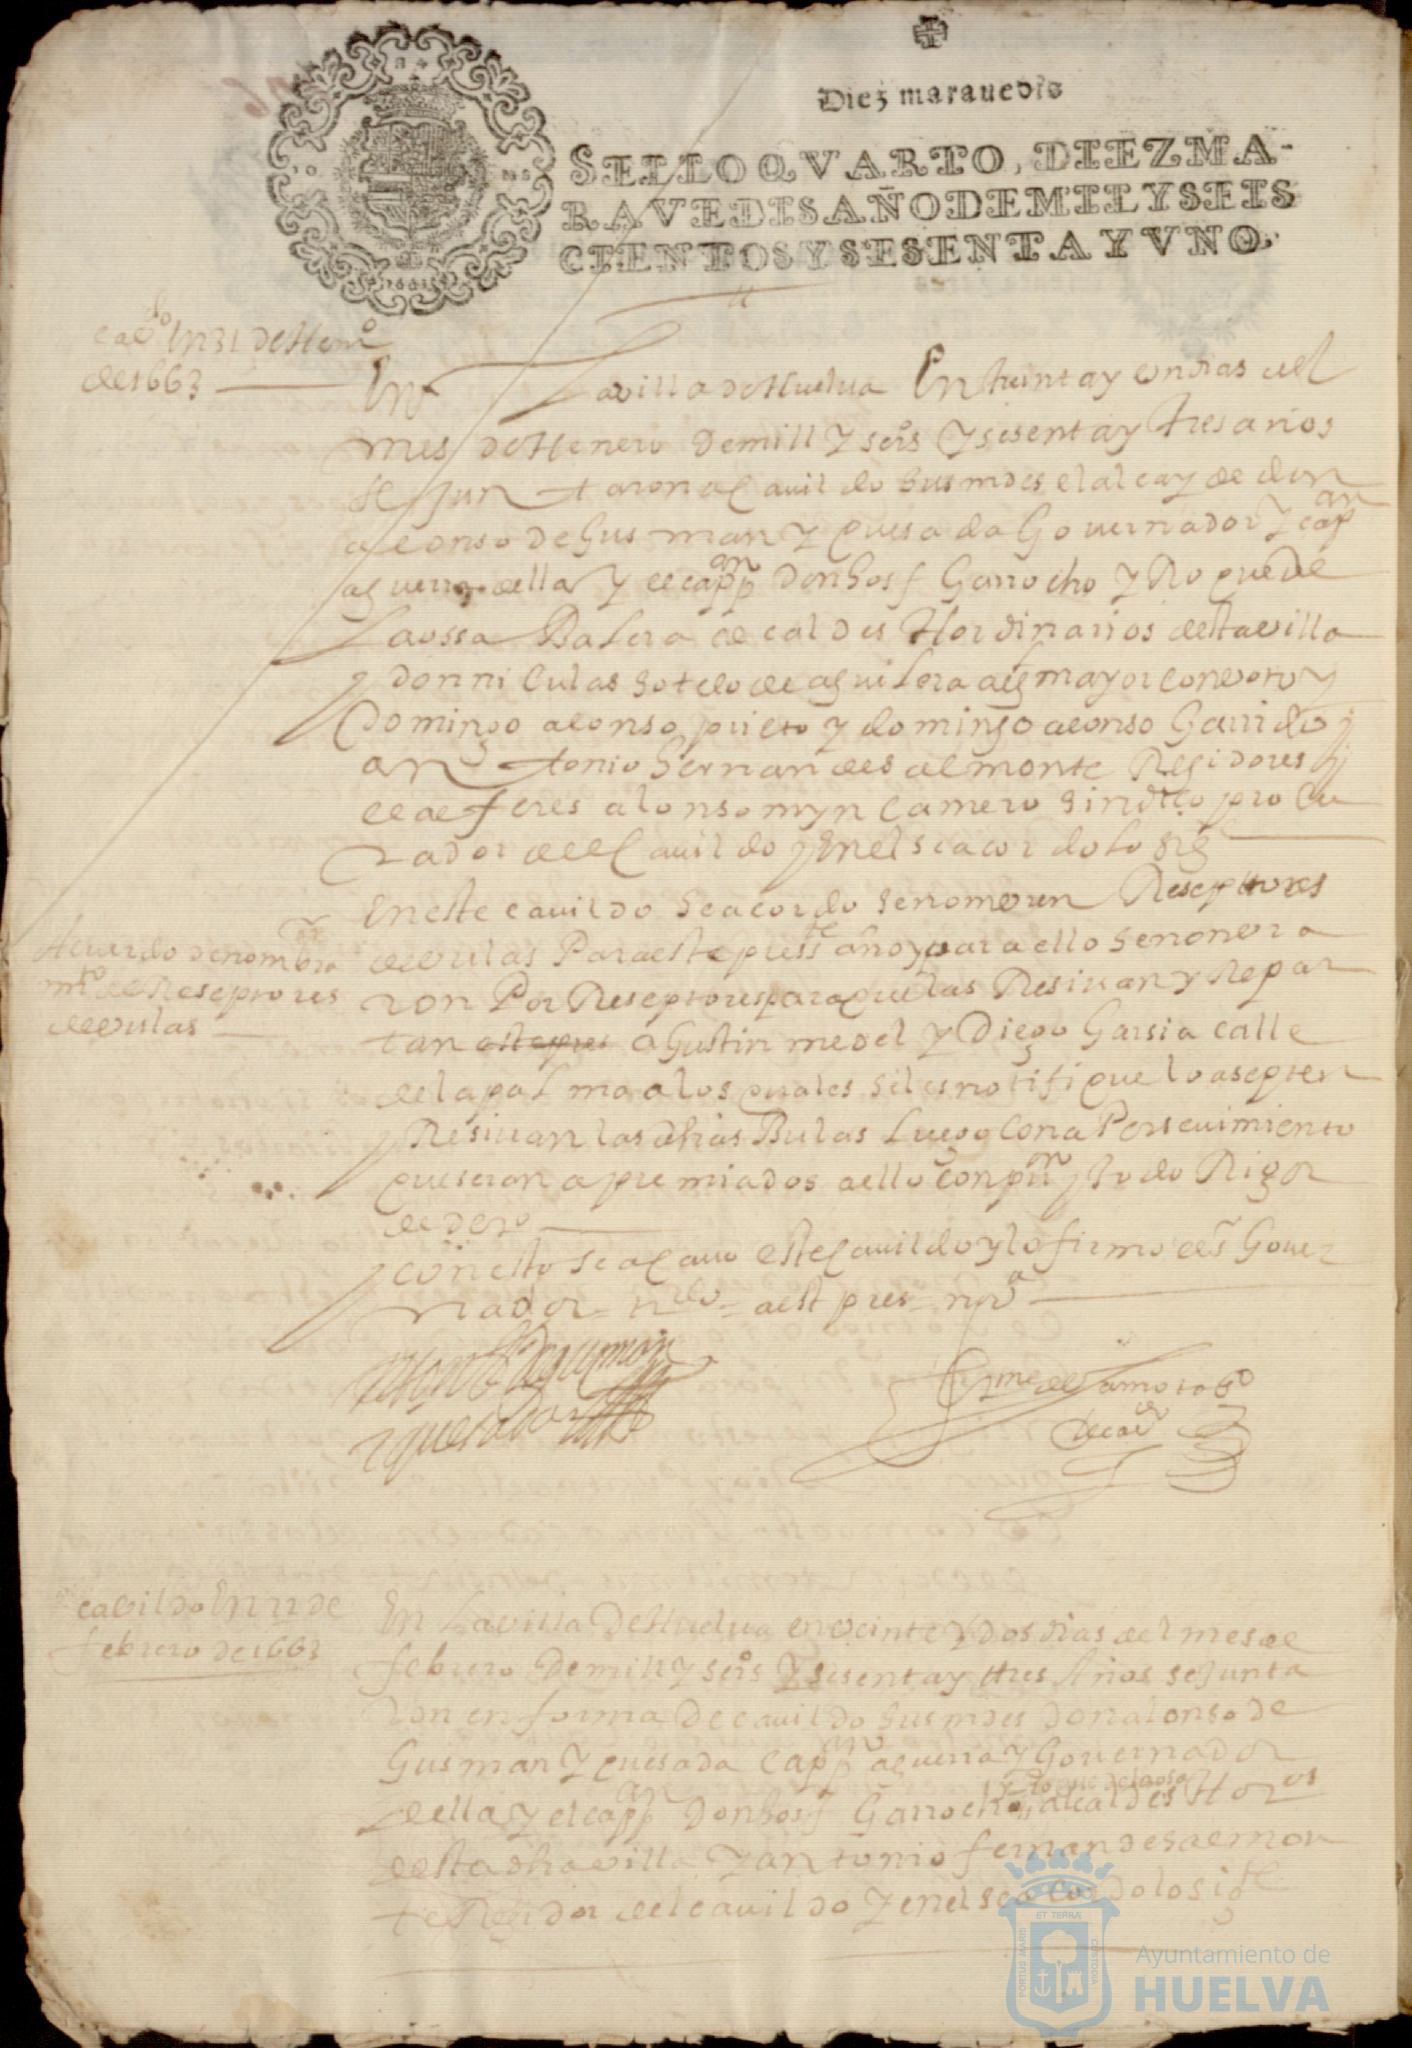 Diez marauedis
SELLO QVARTO, DIEZ MA-
RAVEDIS, AÑO DE MIL Y SEIS
CIENTOS Y SESENTA Y VNO.
cavdo En 31 de Heno
de 1663
En La villa de Huelua En treinta y un dias del
mes de Henero de mill y seis y sesenta y tres años
se juntaron a cauildo sus mdes el alcayde don
alonso de Gusman y quesada Gouernador y capan
a guerra della y el cappan don Josf Garrocho y Roque de
la ossa Balera alcaldes Hordinarios desta villa
y don niculas sotelo de aguilera alg mayor con voto y
Domingo alonso prieto y domingo alonso Garrido y
antonio Hernandes almonte Regidores y
el alferes alonso myn camero sindico procu
rador del cauildo y en el se acordo lo sig
Acuerdo de nombra
mto de Reseptores
de vulas
En este cauildo se acordo se nombren Reseptores
de vulas Para este presste año y para ello se nonbra
ron Por Reseptores para que las Resivan y Repar
tan este pres a Gustin medel y Diego Garsia calle
de la palma a los quales se les notifique lo asepten
y Resivan las dhas Bulas luego con a Persevimiento
que seran apremiados a ello con prin y todo Rigor
de dero
y con esto se acavo este cauildo y lo firmo el sr Gouer
nador = aest pres = nova
Alonso de gusman
y quesada
de Çamora
de cavdo
cavildo En 22 de
febrero de 1663
En La villa de Huelua en veinte y dos dias del mes de
febrero de mill y seis y sesenta y tres Años se junta
ron en forma de cauildo sus mdes don alonso de
Gusman y quesada cappan a guerra y Gouernador
y roque de la osa
della y el cappan don Josf Garrocho alcaldes Horos
desta dha villa y antonio fernandes almon
te Regidor del cauildo y en el se acordo lo sigte
PORTUS MARIS
ET TERRÆ
CUSTODIA
Ayuntamiento de
HUELVA